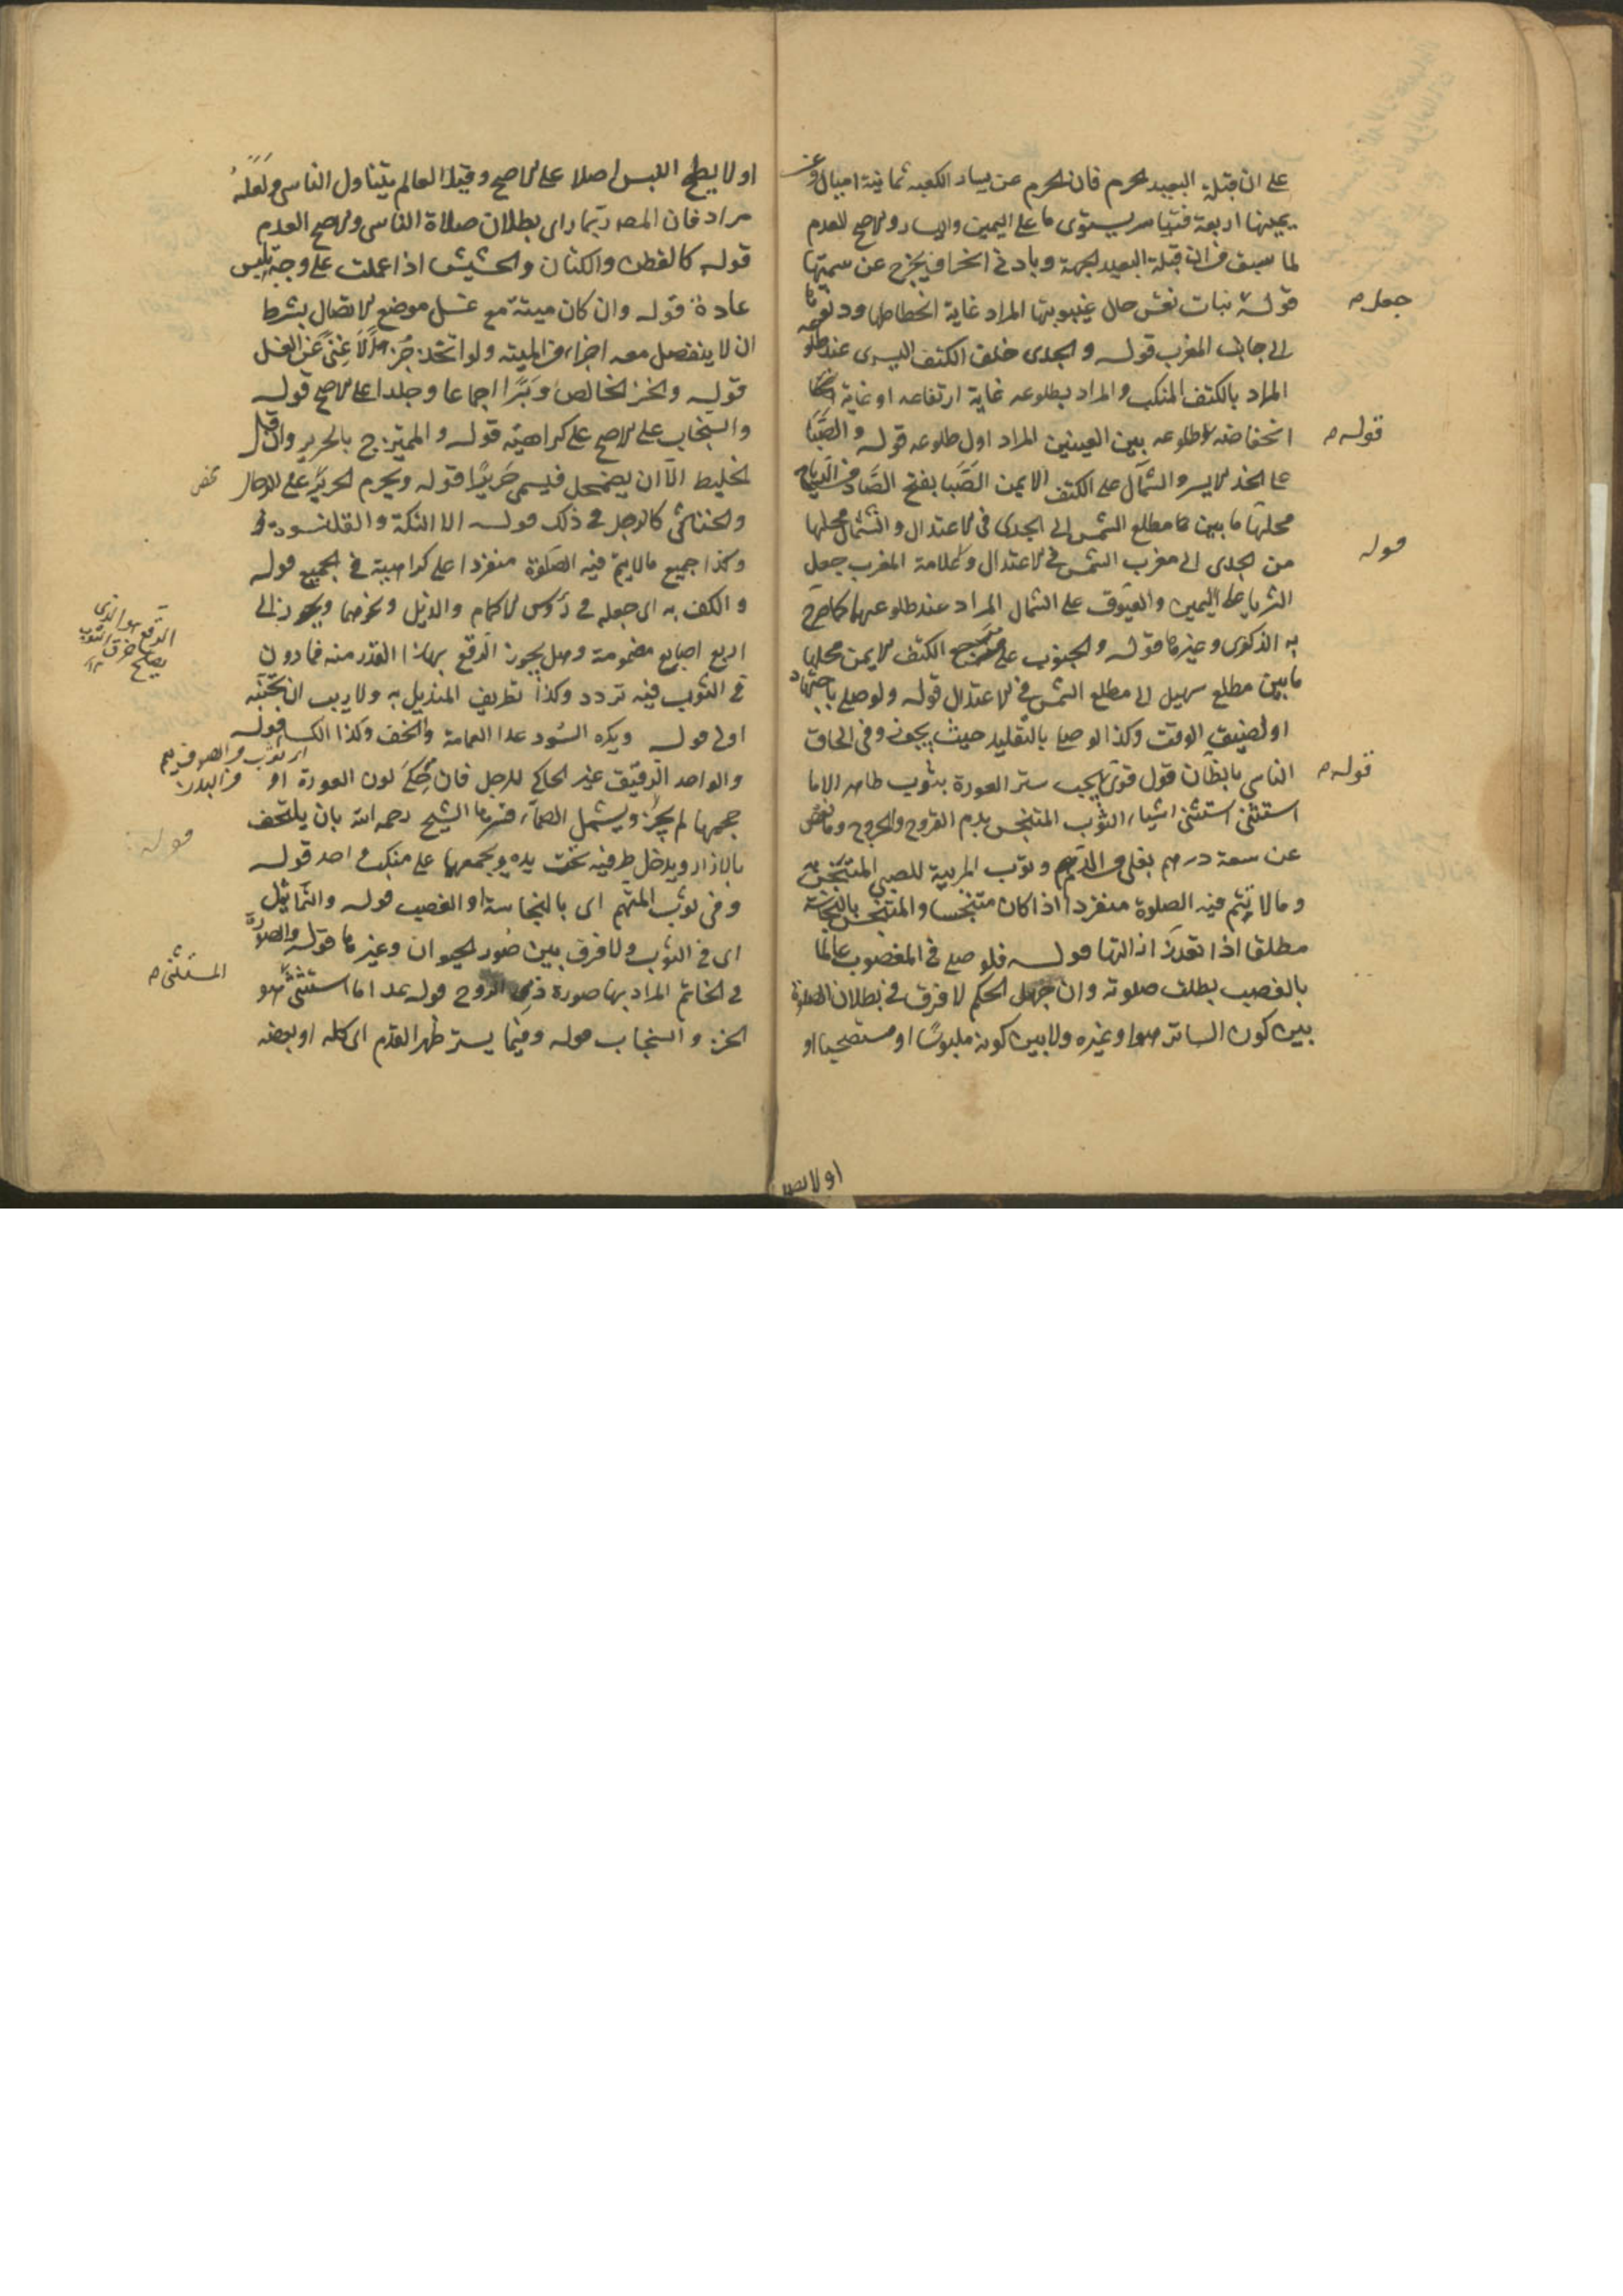 على ان قبلة البعيد الحرم فان الحرم عن يسار الكعبه ثمانية اميال وعن
يمينها اربعة فتيامر يستوى ما على اليمين واليسار والاصح العدم
لما سبق من ان قبلة البعيد الجهة وبادنى انحراف يخرج عن سمتها
قوله بنات نعش حال غيبوبتها المراد غاية انحطاطها ودنوها
جعل
الى جانب المغرب قوله والجدى خلف الكتف اليسرى عند طلوعه
المراد بالكتف المنكب والمراد بطلوعه غاية ارتفاعه او غاية
انخفاضه لا طلوعه بين العينين المراد اول طلوعه قوله والصبا
قوله
على الخد الايسر والشمال على الكتف الايمن الصبا بفتح الصاد من الرياح
محلها ما بين مطلع الشمس الى الجدى فى الاعتدال والشمال محلها
من الجدى الى مغرب الشمس فى الاعتدال وعلامة المغرب جعل
قوله
الثريا على اليمين والعيوق على الشمال المراد عند طلوعهما كما صرح
به الذكرى وغيرها قوله والجنوب على الكتف الايمن محلها
ما بين مطلع سهيل الى مطلع الشمس فى الاعتدال قوله ولو صلى باجتهاد
او لضيق الوقت وكذا لو صلى بالتقليد حيث يجوز وفى الحاق
الناسى بالظان قول قوى يجب ستر العورة بثوب طاهر الا ما
قوله
استثنى استثنى اشياء الثوب المتنجس بدم القروح والجروح وما نقص
عن سعة درهم بغلى من الدم وثوب المربية للصبى المتنجس
وما لا يتم فيه الصلوة منفردا اذا كان متنجسا والمتنجس بالنجاسة
مطلقا اذا تعذر ازالتها قوله فلو صلى فى المغصوب عالما
بالغصب بطلت صلوته وان جهل الحكم لا فرق فى بطلان الصلوة
بين كون الساتر هو او غيره ولا بين كونه ملبوسا او مستصحبا او
او لا يصح
او لا يصح اللبس اصلا على الاصح وقيد العالم يتناول الناسى ولعله
مراد فان المصـ ربما راى بطلان صلاة الناسى والاصح العدم
قوله كالقطن والكتان والحشيش اذا عملت على وجه يلبس
عادة قوله وان كان ميتة مع غسل موضع الاتصال بشرط
ان لا ينفصل معه اجزاء من الميته ولو اتخذ جزازا لا غنى عن الغسل
قوله والخز الخالص وبرا اجماعا وجلدا على الاصح قوله
والسنجاب على الاصح على كراهيته قوله والممتزج بالحرير وان قل
الخليط الا ان يضمحل فيسمى حريرا قوله ويحرم الحرير على الرجال
والخناثى كالرجل فى ذلك قوله الا التكة والقلنسوة
وكذا جميع ما لا يتم فيه الصلوة منفردا على كراهية فى الجميع قوله
والكف به اى جعله فى رؤس الاكمام والذيل ونحوهما ويجوز الى
اربع اصابع مضمومة وهل يجوز الرقع بهذا القدر منه فما دون
الرقع هو الذى
يصلح خرق الثوب
١٢
فى الثوب فيه تردد وكذا تطريف المنديل به ولا ريب ان تجنبه
اولى قوله ويكره السود عدا العمامة والخف وكذا الكسا قوله
والواحد الرقيق غير الحاكى للرجل فان حكى لون العورة او
حجمها لم يجز ويشمل الصماء فسرها الشيخ رحمه الله بان يلتحف
قوله
بالازار ويدخل طرفيه تحت يده ويجمعهما على منكب واحد قوله
وفى ثوب المتهم اى بالنجاسة او الغصب قوله والتماثيل
اى فى الثوب ولا فرق بين صور الحيوان وغيرها قوله والصورة
المستثنى
فى الخاتم المراد بها صورة ذى الروح قوله عدا ما استثنى هو
الخز والسنجاب قوله وفيما يستر ظهر القدم اى كله او بعضه